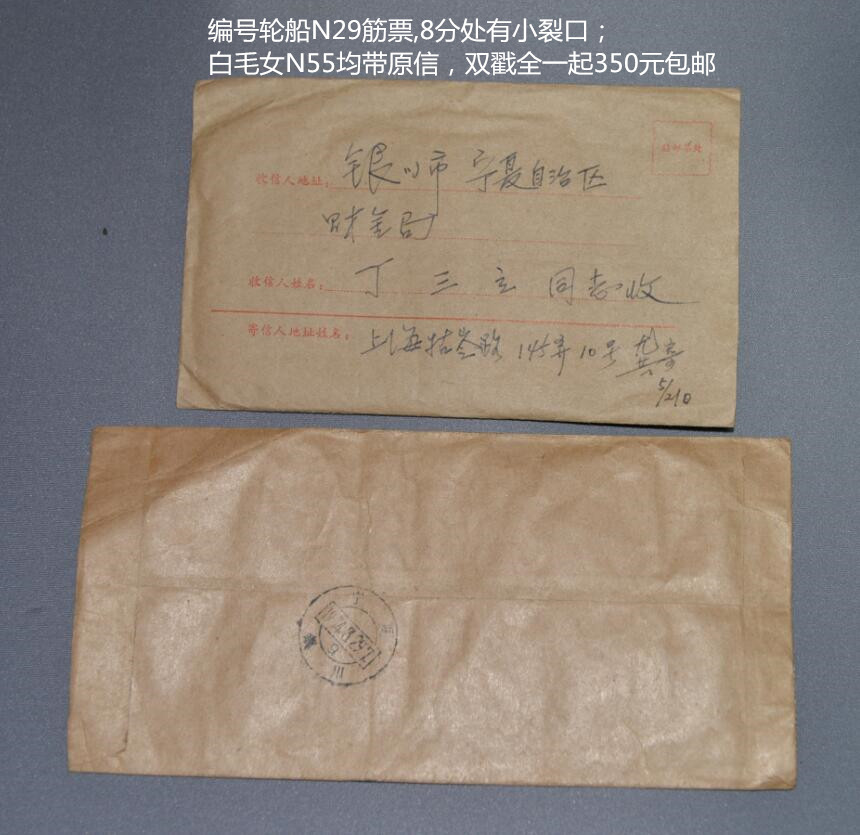 编号轮船N29筋票,8分处有小裂口；
白毛女N55均带原信，双戳全一起350元包邮
贴邮票处
收信人地址：银川市 宁夏自治区
财金局
收信人姓名：丁三立 同志收
寄信人地址姓名：上海牯岭路145弄10号 龚寄
5/210
宁夏
1974.8.29.21
9
银川